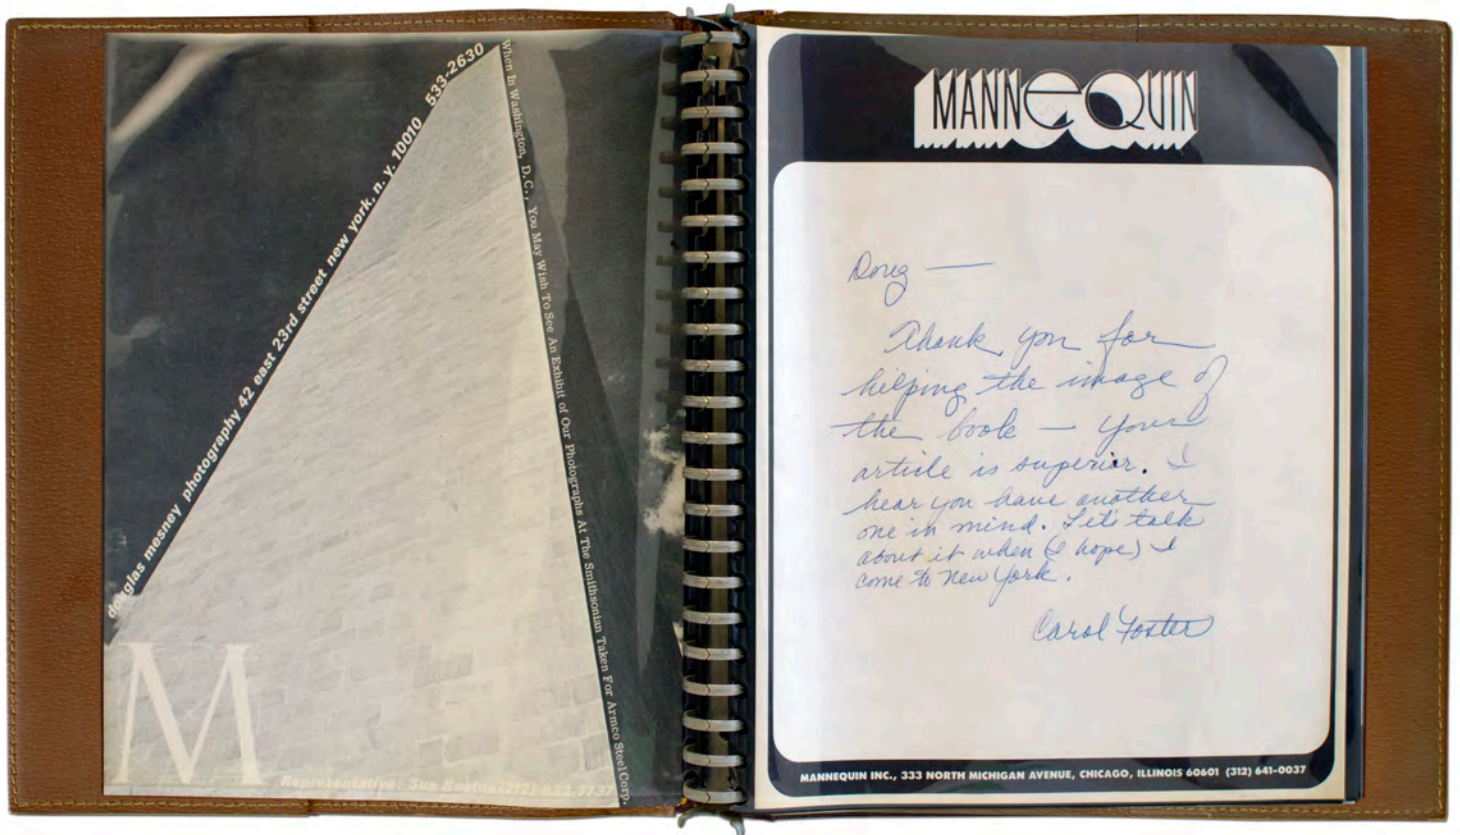 douglas mesney photography 42 east 23rd street new york, n. y. 10010 533-2630
When In Washington, D.C., You May Wish To See An Exhibit of Our Photographs At The Smithsonian Taken For Armco Steel Corp.
M
Representative: Sue Keaton (212) 832-7737
MANNeQUIN
Doug —
Thank you for
helping the image of
the book — your
article is superior. I
hear you have another
one in mind. Let's talk
about it when (I hope) I
come to New York.
Carol Foster
MANNEQUIN INC., 333 NORTH MICHIGAN AVENUE, CHICAGO, ILLINOIS 60601 (312) 641-0037